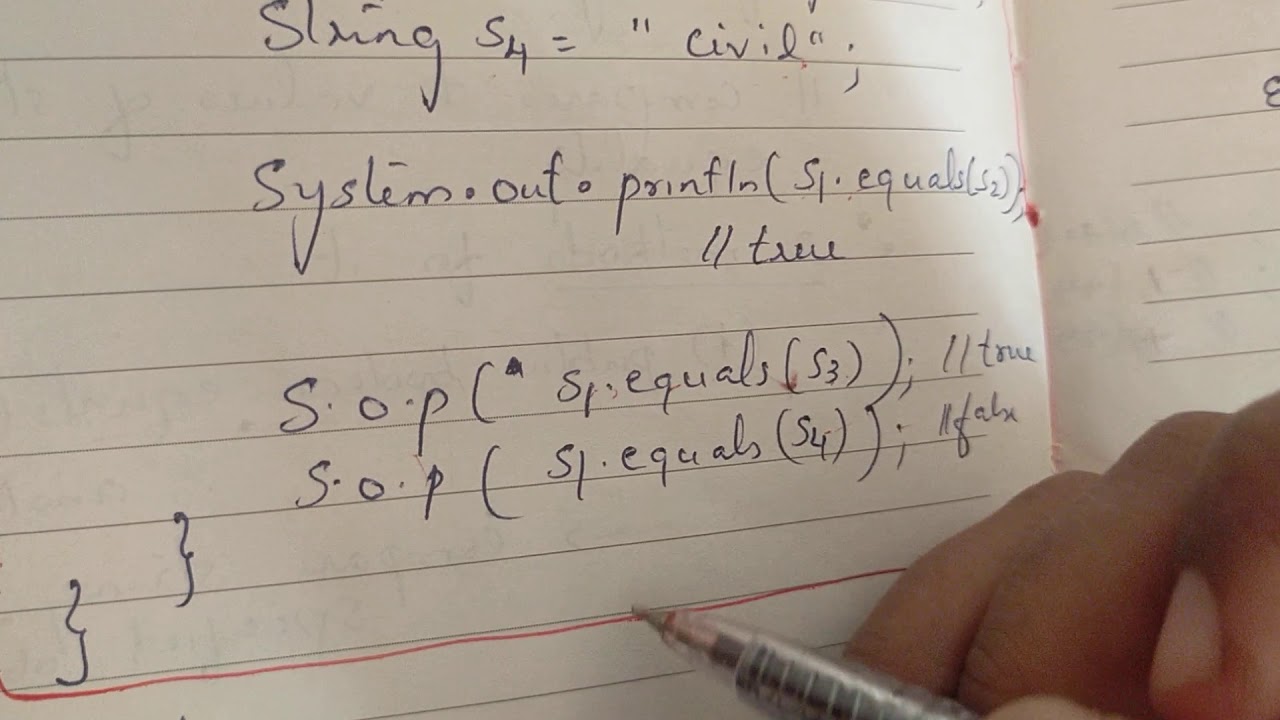 String s4 = " civil" ;
System.out.println( s1.equals(s2));
// true
S.o.p ( s1.equals(s3) ); // true
S.o.p ( s1.equals(s4) ); // false
}
}